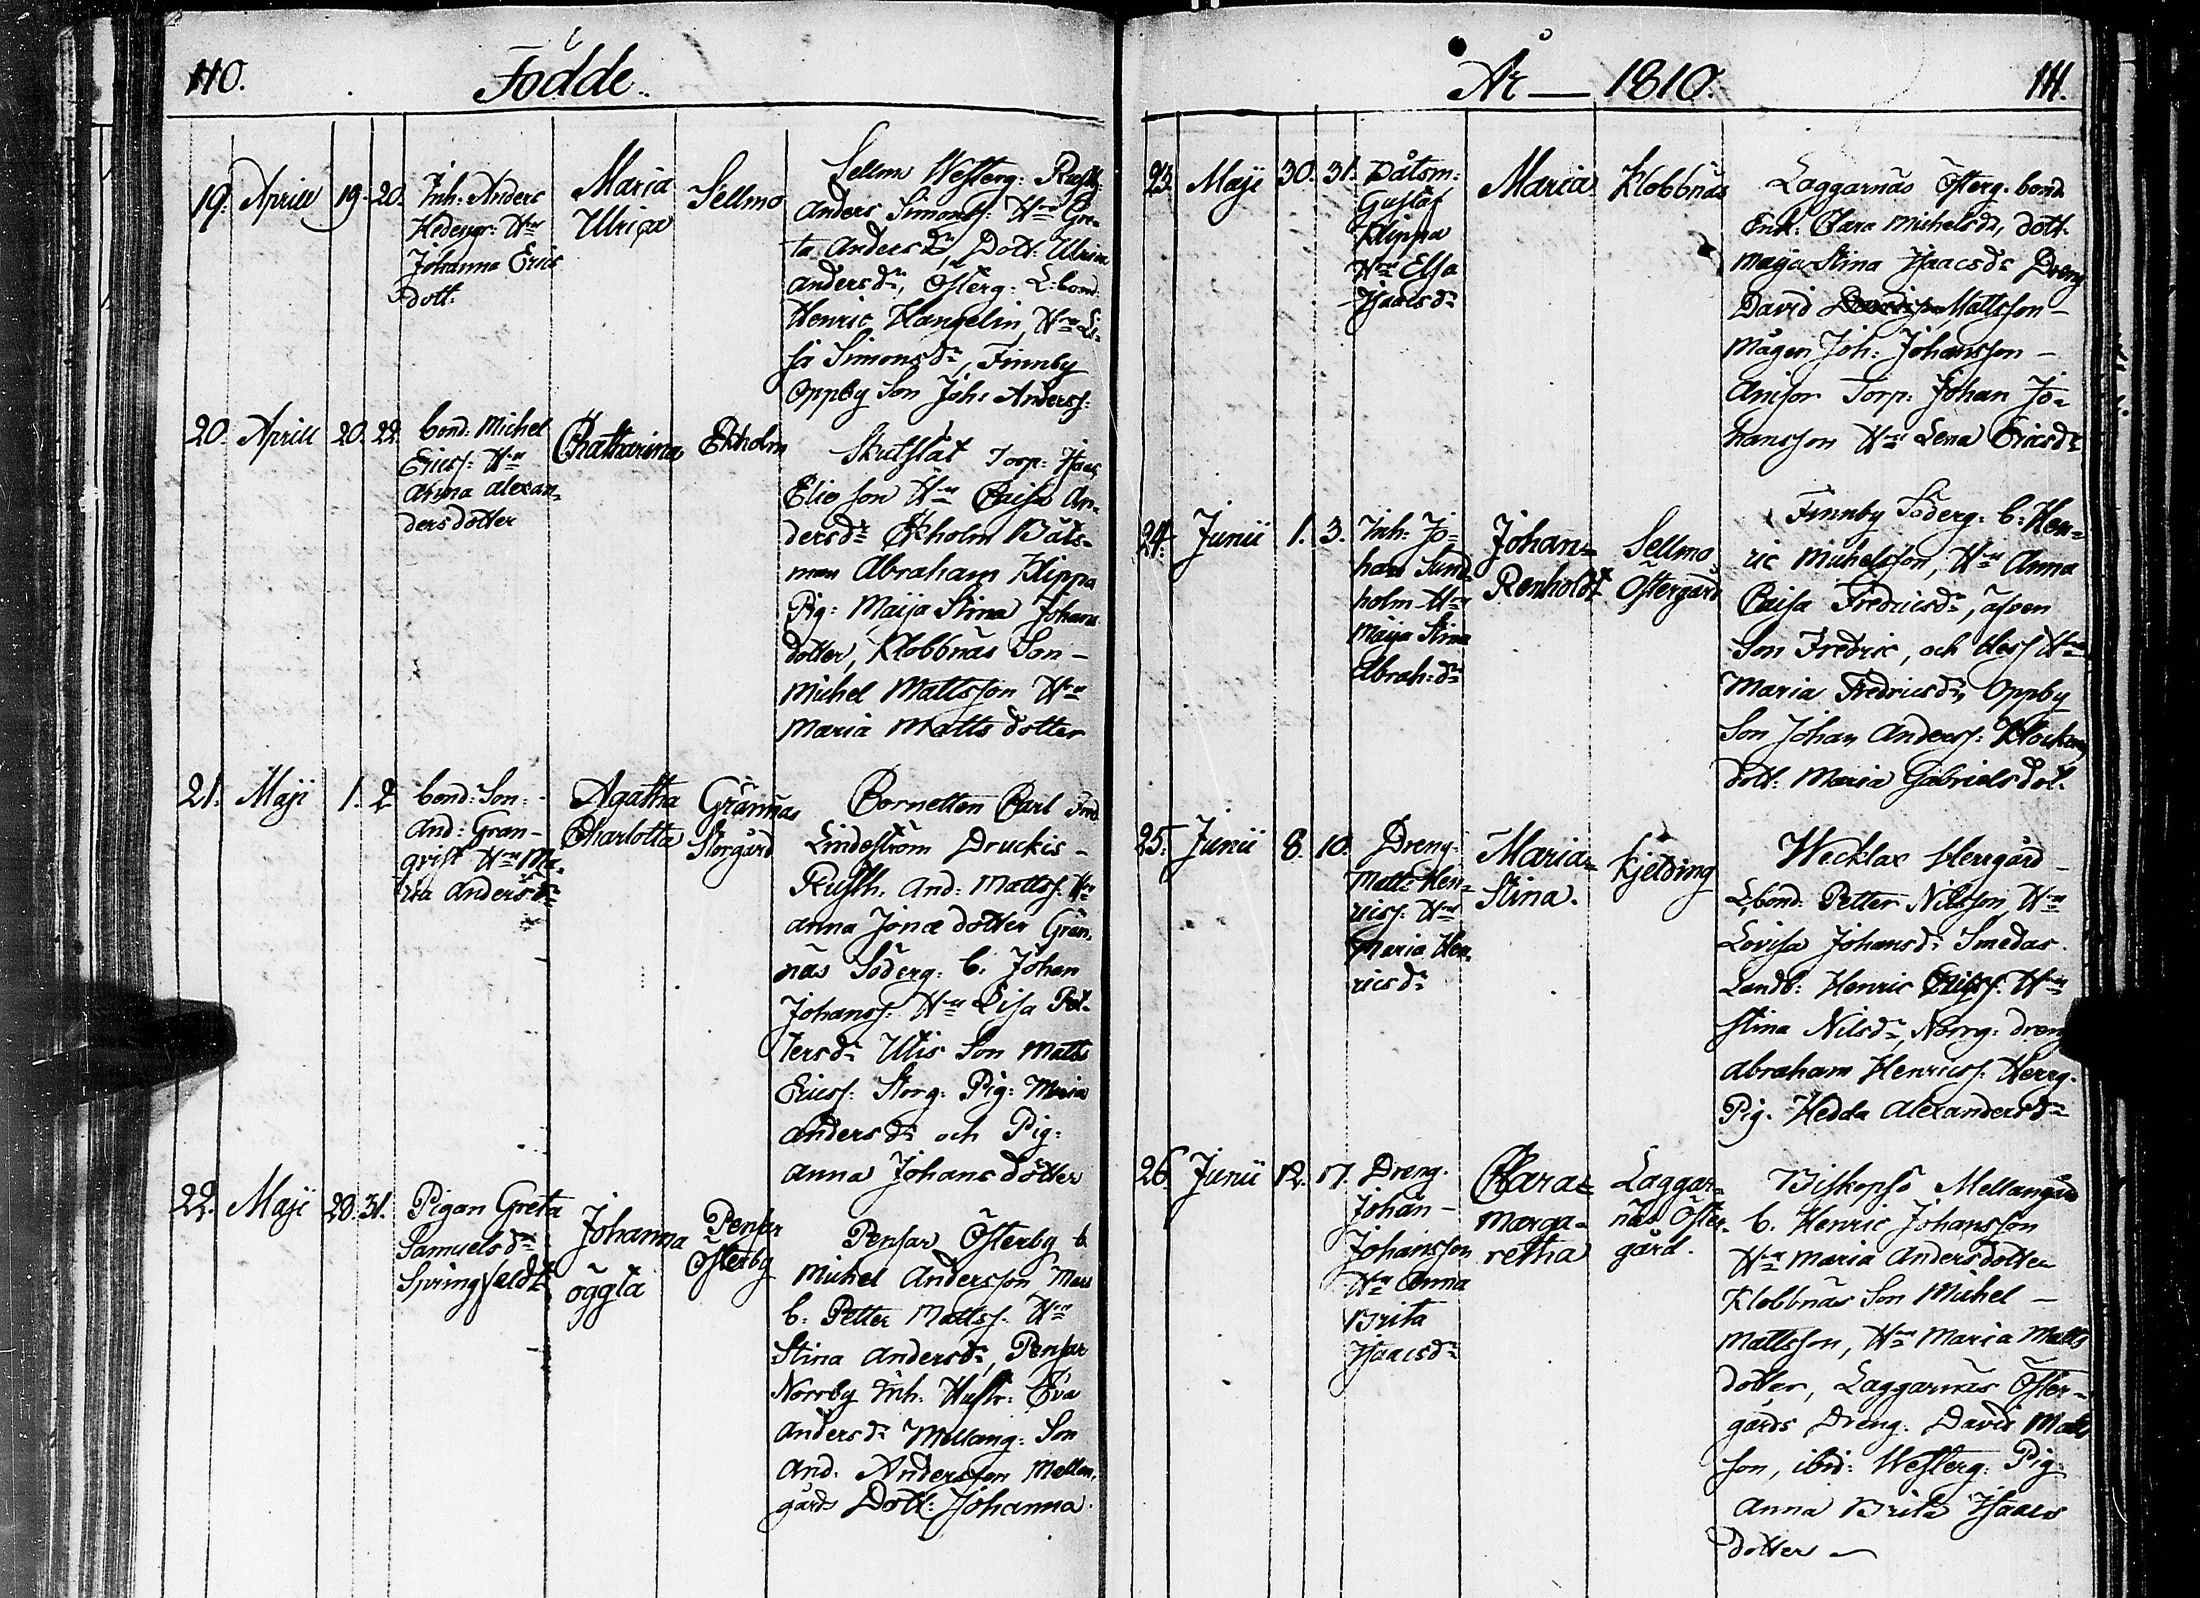 110.
Födde.
19. Aprill 19. 20.
Inh: Anders
Hedengr: H:u
Johanna Erics
dott:
Maria
Ulrica
Sellmo
Sellmo Westerg: Rusth:
Anders Simonss: H:u Gre-
ta Andersd:r, Dott: Ulrica
Andersd:r, Österg: L:bond.
Henric Hangelin, H:u Li-
sa Simonsd:r, Finnby
Oppby Son Joh: Anderss:
20. Aprill 20. 22.
bond: Michel
Ericss: H:u
Anna Alexan-
dersdotter
Chatharina
Ekholm
Skutslät Torp: Isaac
Elieson H:u Caisa An-
dersd:r Ekholm Båts-
man Abraham Klippa
Pig: Maija Stina Johans
dotter, Klobbnäs Son -
Michel Mattsson H:u
Maria Matts dotter
21. Maji 1. 2
bond: Son:
And: Gran-
qvist H:u Ma-
ria Andersd:r
Agatha
Charlotta
Grännäs
Storgård
Cornetten Carl Fred.
Lindeström Druckis -
Rusth. And: Mattss. H:u
Anna Jonæ dotter Grän-
näs Söderg: b: Johan
Johanss: H:u Lisa Pet-
tersd:r Utis Son Matts
Ericss: Storg: Pig: Maria
Andersd:r och Pig:
Anna Johans dotter
22. Maji 28. 31.
Pigan Greta
Samuelsd:r
Springfeldt
Johanna
öggta
Pensar
Österby
Pensar Österby b.
Michel Andersson
b: Petter Mattss: H:u
Stina Andersd:r, Pensar
Norrby Inh: Hustr: Eva
Andersd:r Mellang: Son
And: Andersson Mellan-
gårds Dott: Johanna.
År — 1810.
111.
23. Maji 30. 31.
Båtsm:
Gustaf
Klippa
H:u Elsa
Isaacsd:r
Maria
Klobbnäs
Laggarnäs Österg. bond.
Enk: Clara Michelsd:r, dott.
Maija Stina Isaacsd:r Dreng
David Mattsson -
Mågen Joh: Johansson -
Anisor Torp: Johan Jo-
hansson H:u Lena Ericsd:r
24. Junii 1. 3.
Inh: Jo-
han Sund-
holm H:u
Maija Stina
Abrah:d:r
Johan-
Renholdt
Sellmo
Östergård
Finnby Söderg: b: Hen-
ric Michelsson, H:u Anna
Caisa Fredricsd:r, Äspen
Son Fredric, och dess H:u
Maria Fredricsd:r, Oppby
Son Johan Anderss: Klockar
dott: Maria Gabriels dot.
25. Junii 8. 10.
Dreng:
Matts Hen-
ricss: H:u
Maria Hen-
ricsd:r
Maria-
Stina.
Kjelding
Wecklax Herrgård -
L:bond: Petter Nilsson, H:u
Lovisa Johansd:r Smedas
Landb: Henric H:u
Stina Nilsd:r, Norrg: dreng
Abraham Henricss: Herrg.
Pig. Hedda Alexandersd:r
26. Junii 12. 17.
Dreng.
Johan -
Johansson
H:u Anna
Brita
Isaacsd:r
Clara-
Marga-
retha
Laggar-
näs Öster-
gård.
Biskopsö Mellangård
b. Henric Johansson
H:u Maria Anders dotter
Klobbnäs Son Michel -
Mattsson, H:u Maria Matts
dotter, Laggarnäs Öster-
gårds Dreng: David Matts
son, ibid: Westerg: Pig
Anna Brita Isaacs
dotter